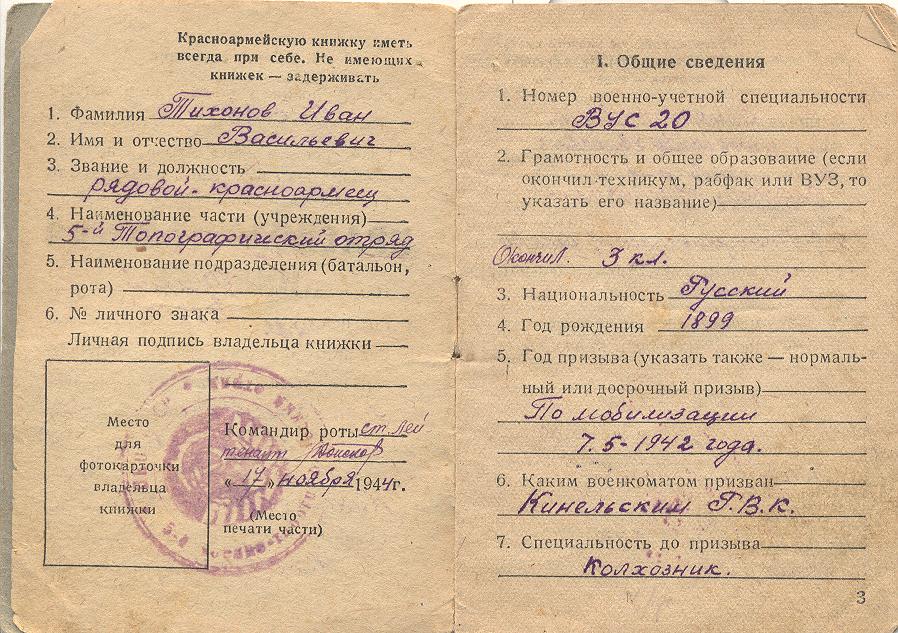 Красноармейскую книжку иметь
всегда при себе. Не имеющих
книжек — задерживать
1. Фамилия Тихонов Иван
2. Имя и отчество Васильевич
3. Звание и должность
рядовой - красноармеец
4. Наименование части (учреждения)
5-й Топографический отряд
5. Наименование подразделения (батальон,
рота)
6. № личного знака
Личная подпись владельца книжки
Место
для
фотокарточки
владельца
книжки
Командир роты ст. лей
тенант
"17" ноября 1944г.
(Место
печати части)
I. Общие сведения
1. Номер военно-учетной специальности
ВУС 20
2. Грамотность и общее образование (если
окончил техникум, рабфак или ВУЗ, то
указать его название)
Окончил. 3 кл.
3. Национальность Русский
4. Год рождения 1899
5. Год призыва (указать также — нормаль-
ный или досрочный призыв)
По мобилизации
7.5-1942 года.
6. Каким военкоматом призван
Кинельским Г.В.К.
7. Специальность до призыва
Колхозник.
3